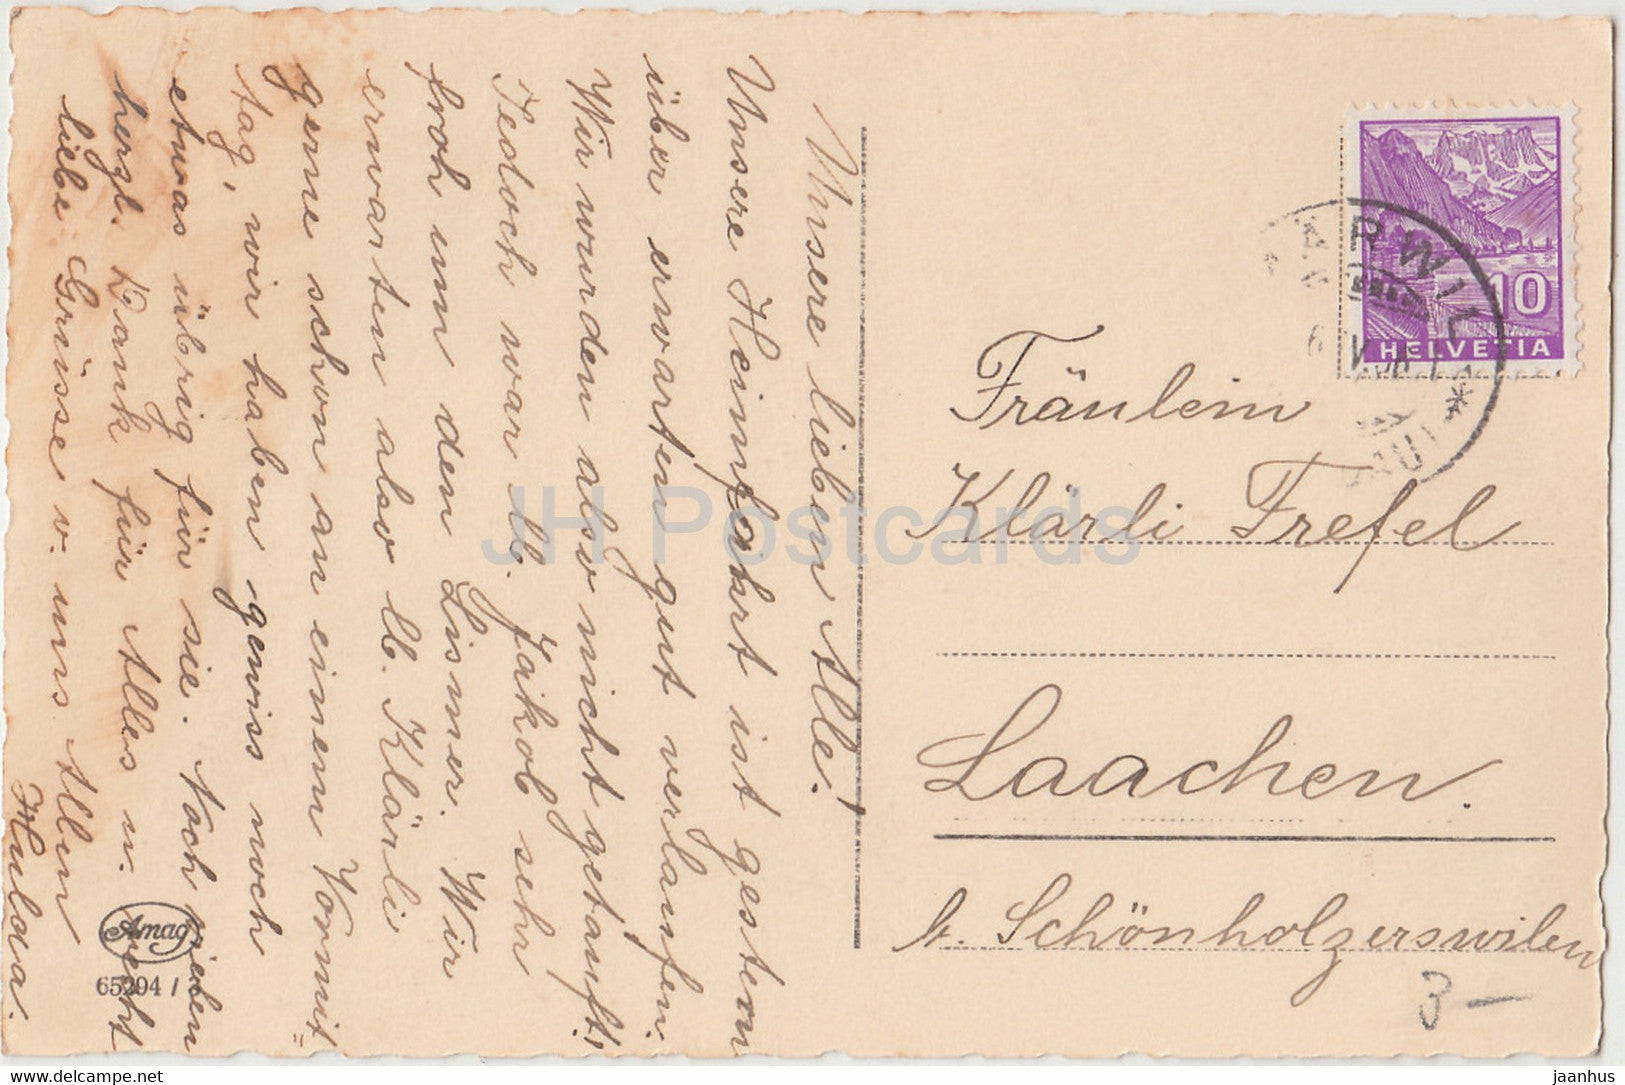 Unsere lieben Alle!
Unsere Heimfahrt ist gestern
über erwarten gut verlaufen.
Wir wurden also nicht getauft!
Jedoch war lb. Jakob sehr
froh um den Lismer. Wir
erwarten also lb. Klärli
gerne schon an einem Vormit=
tag, wir haben gewiss noch
etwas übrig für sie. Noch jeden
herzl. Dank für Alles u. recht
liebe Grüsse v. uns Allen
Hulda.
Amag
65294 /
HELVETIA
10
ARWIL
Fräulein
Klärli Frefel
Laachen.
b. Schönholzerswilen
3 —
JH Postcards
www.delcampe.net
jaanhus